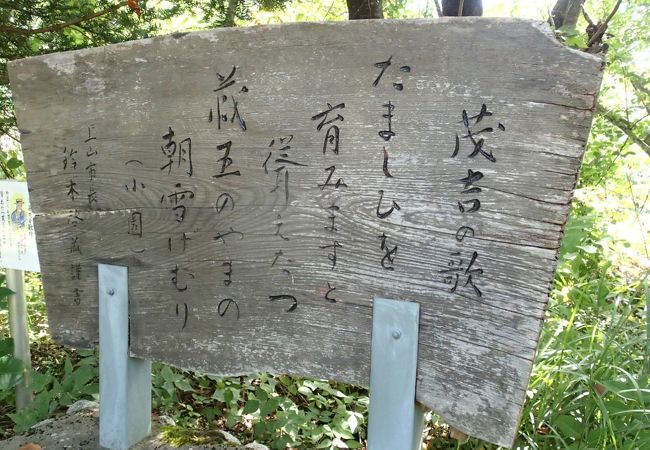 茂吉の歌
たましひを
育みますと
聳えたつ
蔵王のやまの
朝雪げむり
(小園)
上山市長
鈴木啓蔵謹書